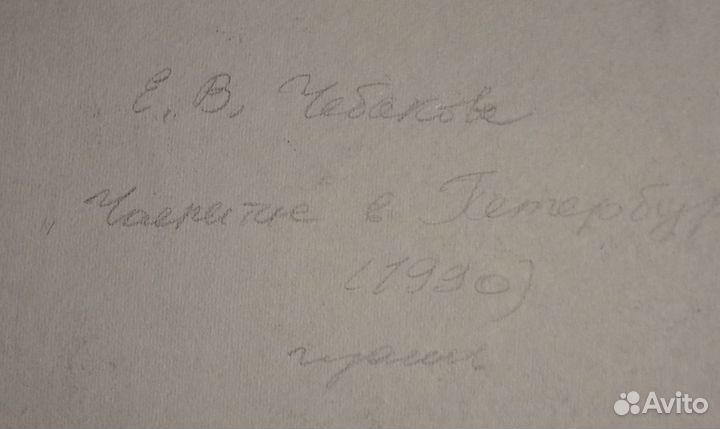 Е. В. Чебакова
„Чаепитие" в Петербур
(1990)
гуашь
Avito